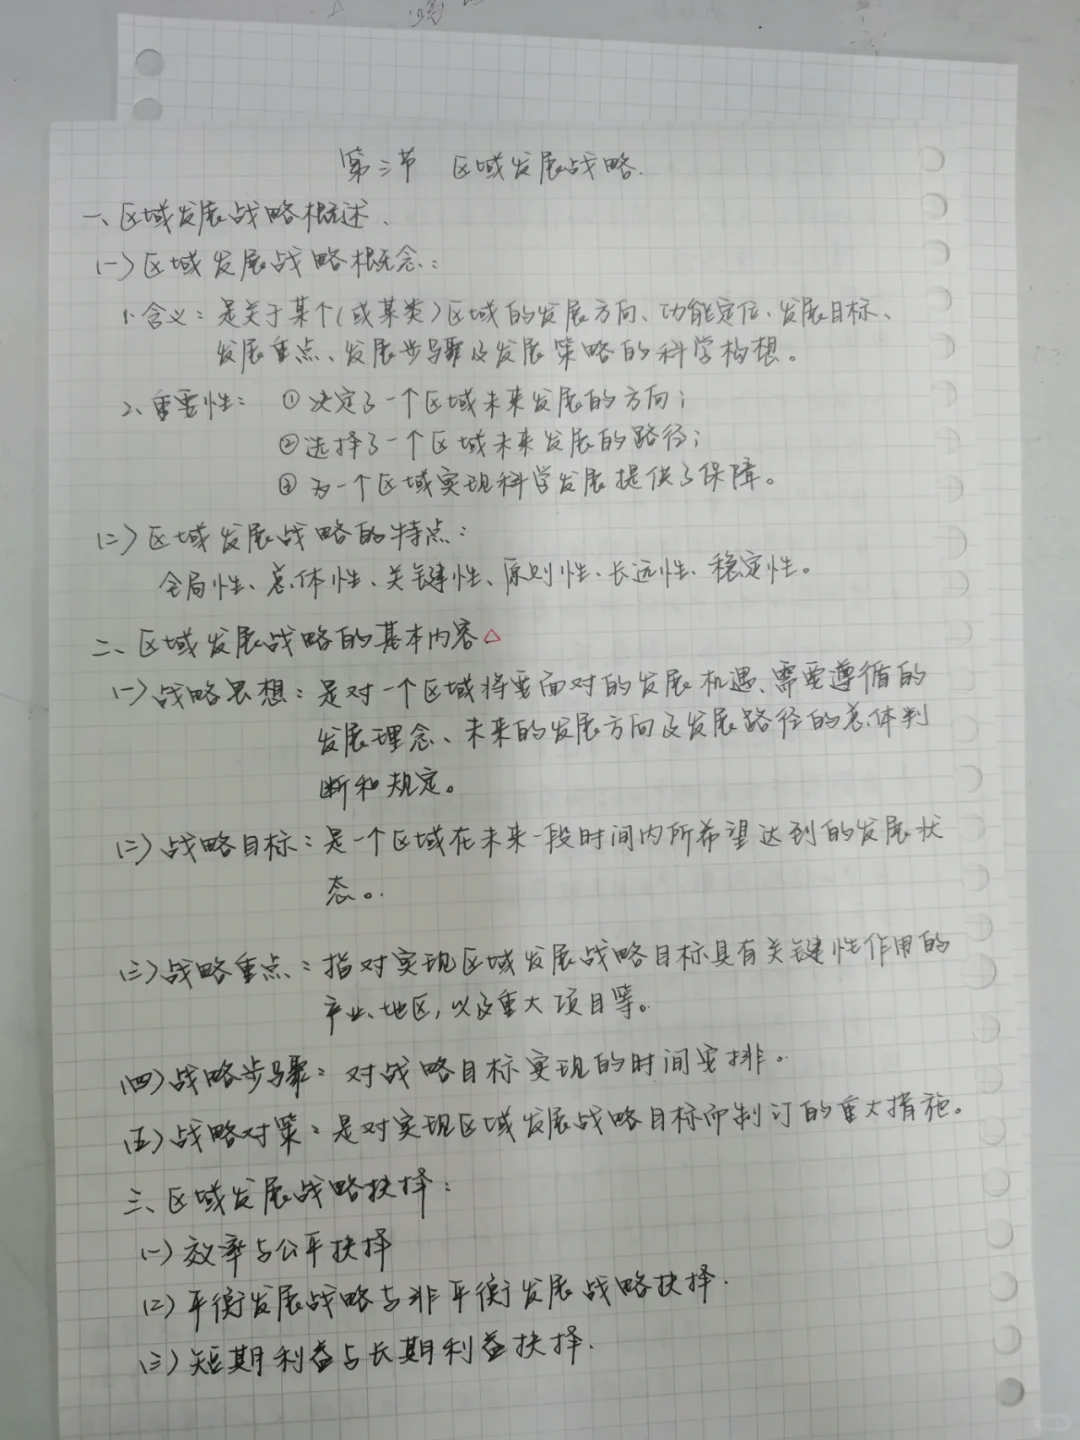 第三节 区域发展战略.
一、区域发展战略概述.
(一)区域发展战略概念:
1.含义:是关于某个(或某类)区域的发展方向、功能定位、发展目标、
发展重点、发展步骤及发展策略的科学构想。
2.重要性: ①决定了一个区域未来发展的方向;
②选择了一个区域未来发展的路径;
③为一个区域实现科学发展提供了保障。
(二)区域发展战略的特点:
全局性、总体性、关键性、原则性、长远性、稳定性。
二、区域发展战略的基本内容△
(一)战略思想:是对一个区域将要面对的发展机遇、需要遵循的
发展理念、未来的发展方向及发展路径的总体判
断和规定。
(二)战略目标:是一个区域在未来一段时间内所希望达到的发展状
态。
(三)战略重点:指对实现区域发展战略目标具有关键性作用的
产业、地区,以及重大项目等。
(四)战略步骤:对战略目标实现的时间安排。
(五)战略对策:是对实现区域发展战略目标而制订的重大措施。
三、区域发展战略抉择:
(一)效率与公平抉择
(二)平衡发展战略与非平衡发展战略抉择.
(三)短期利益与长期利益抉择.